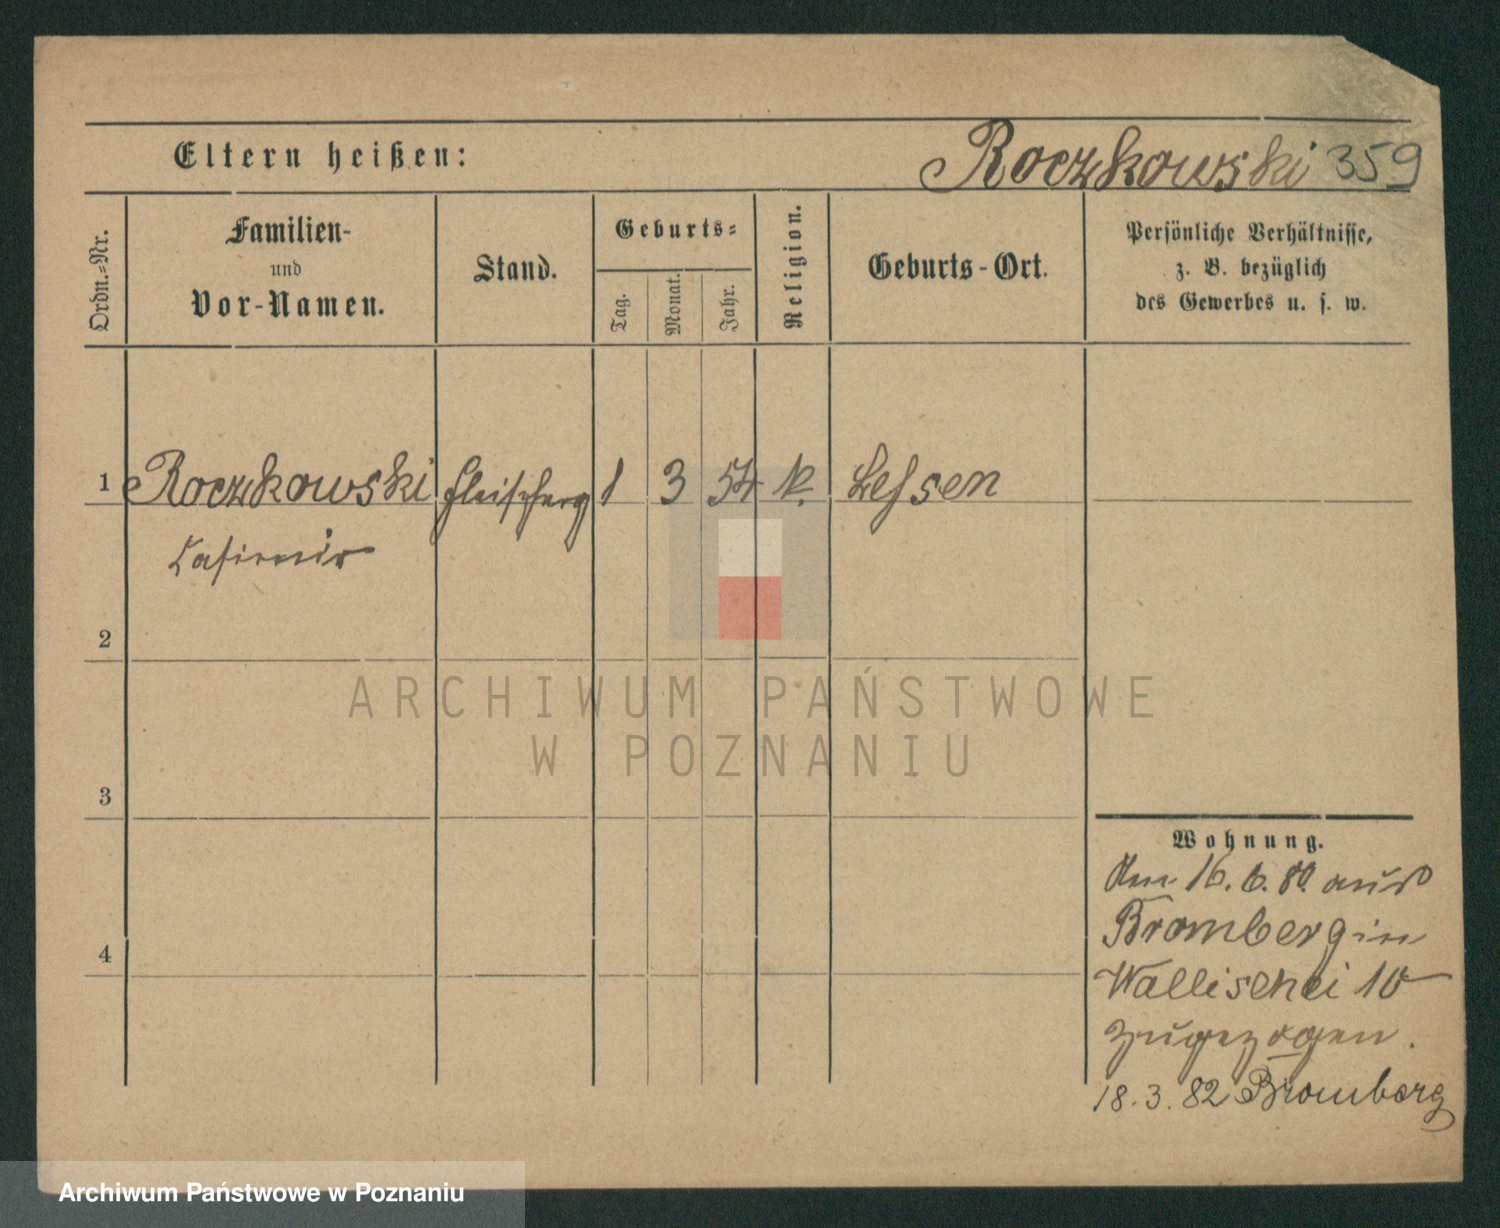 Eltern heißen:
Roczkowski 359
Ordn.=Nr.
Familien-
und
Vor-Namen.
Stand.
Geburts=
Tag.
Monat.
Jahr.
Religion.
Geburts-Ort.
Persönliche Verhältnisse,
z. B. bezüglich
des Gewerbes u. s. w.
1 Roczkowski 1 3 54 k. Lessen
Casimir
2
3
4
ARCHIWUM PAŃSTWOWE
W POZNANIU
Wohnung.
Den 16. 6. 80. aus
Bromberg in
Wallischei 10
zugezogen.
18. 3. 82 Bromberg
Archiwum Państwowe w Poznaniu